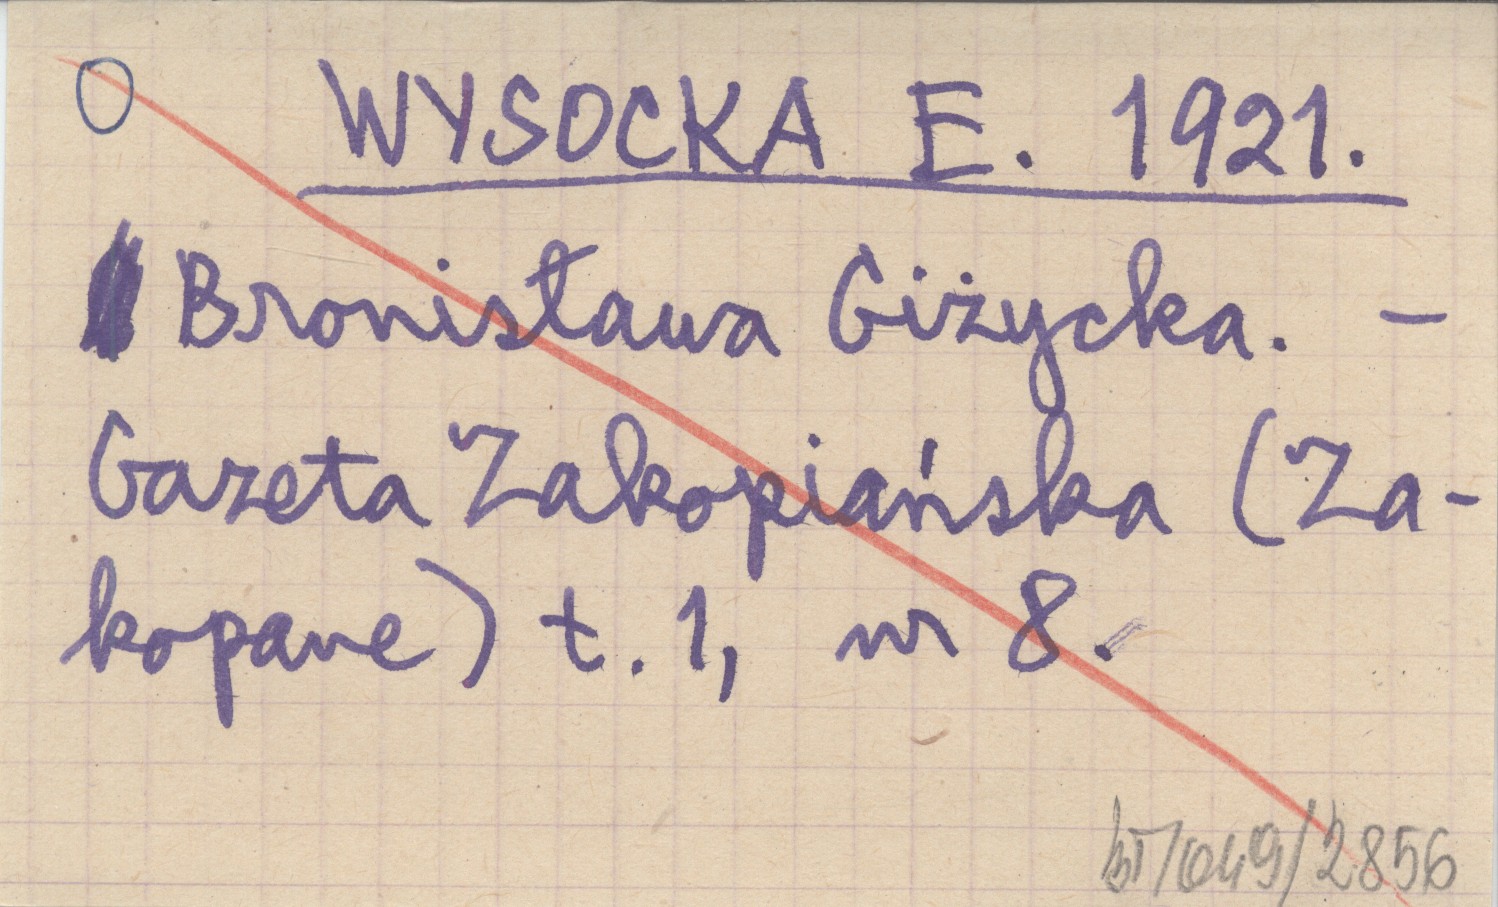 O WYSOCKA E. 1921.
Bronisława Giżycka. –
Gazeta Zakopiańska (Za-
kopane) t. 1, nr 8.
/049/2856